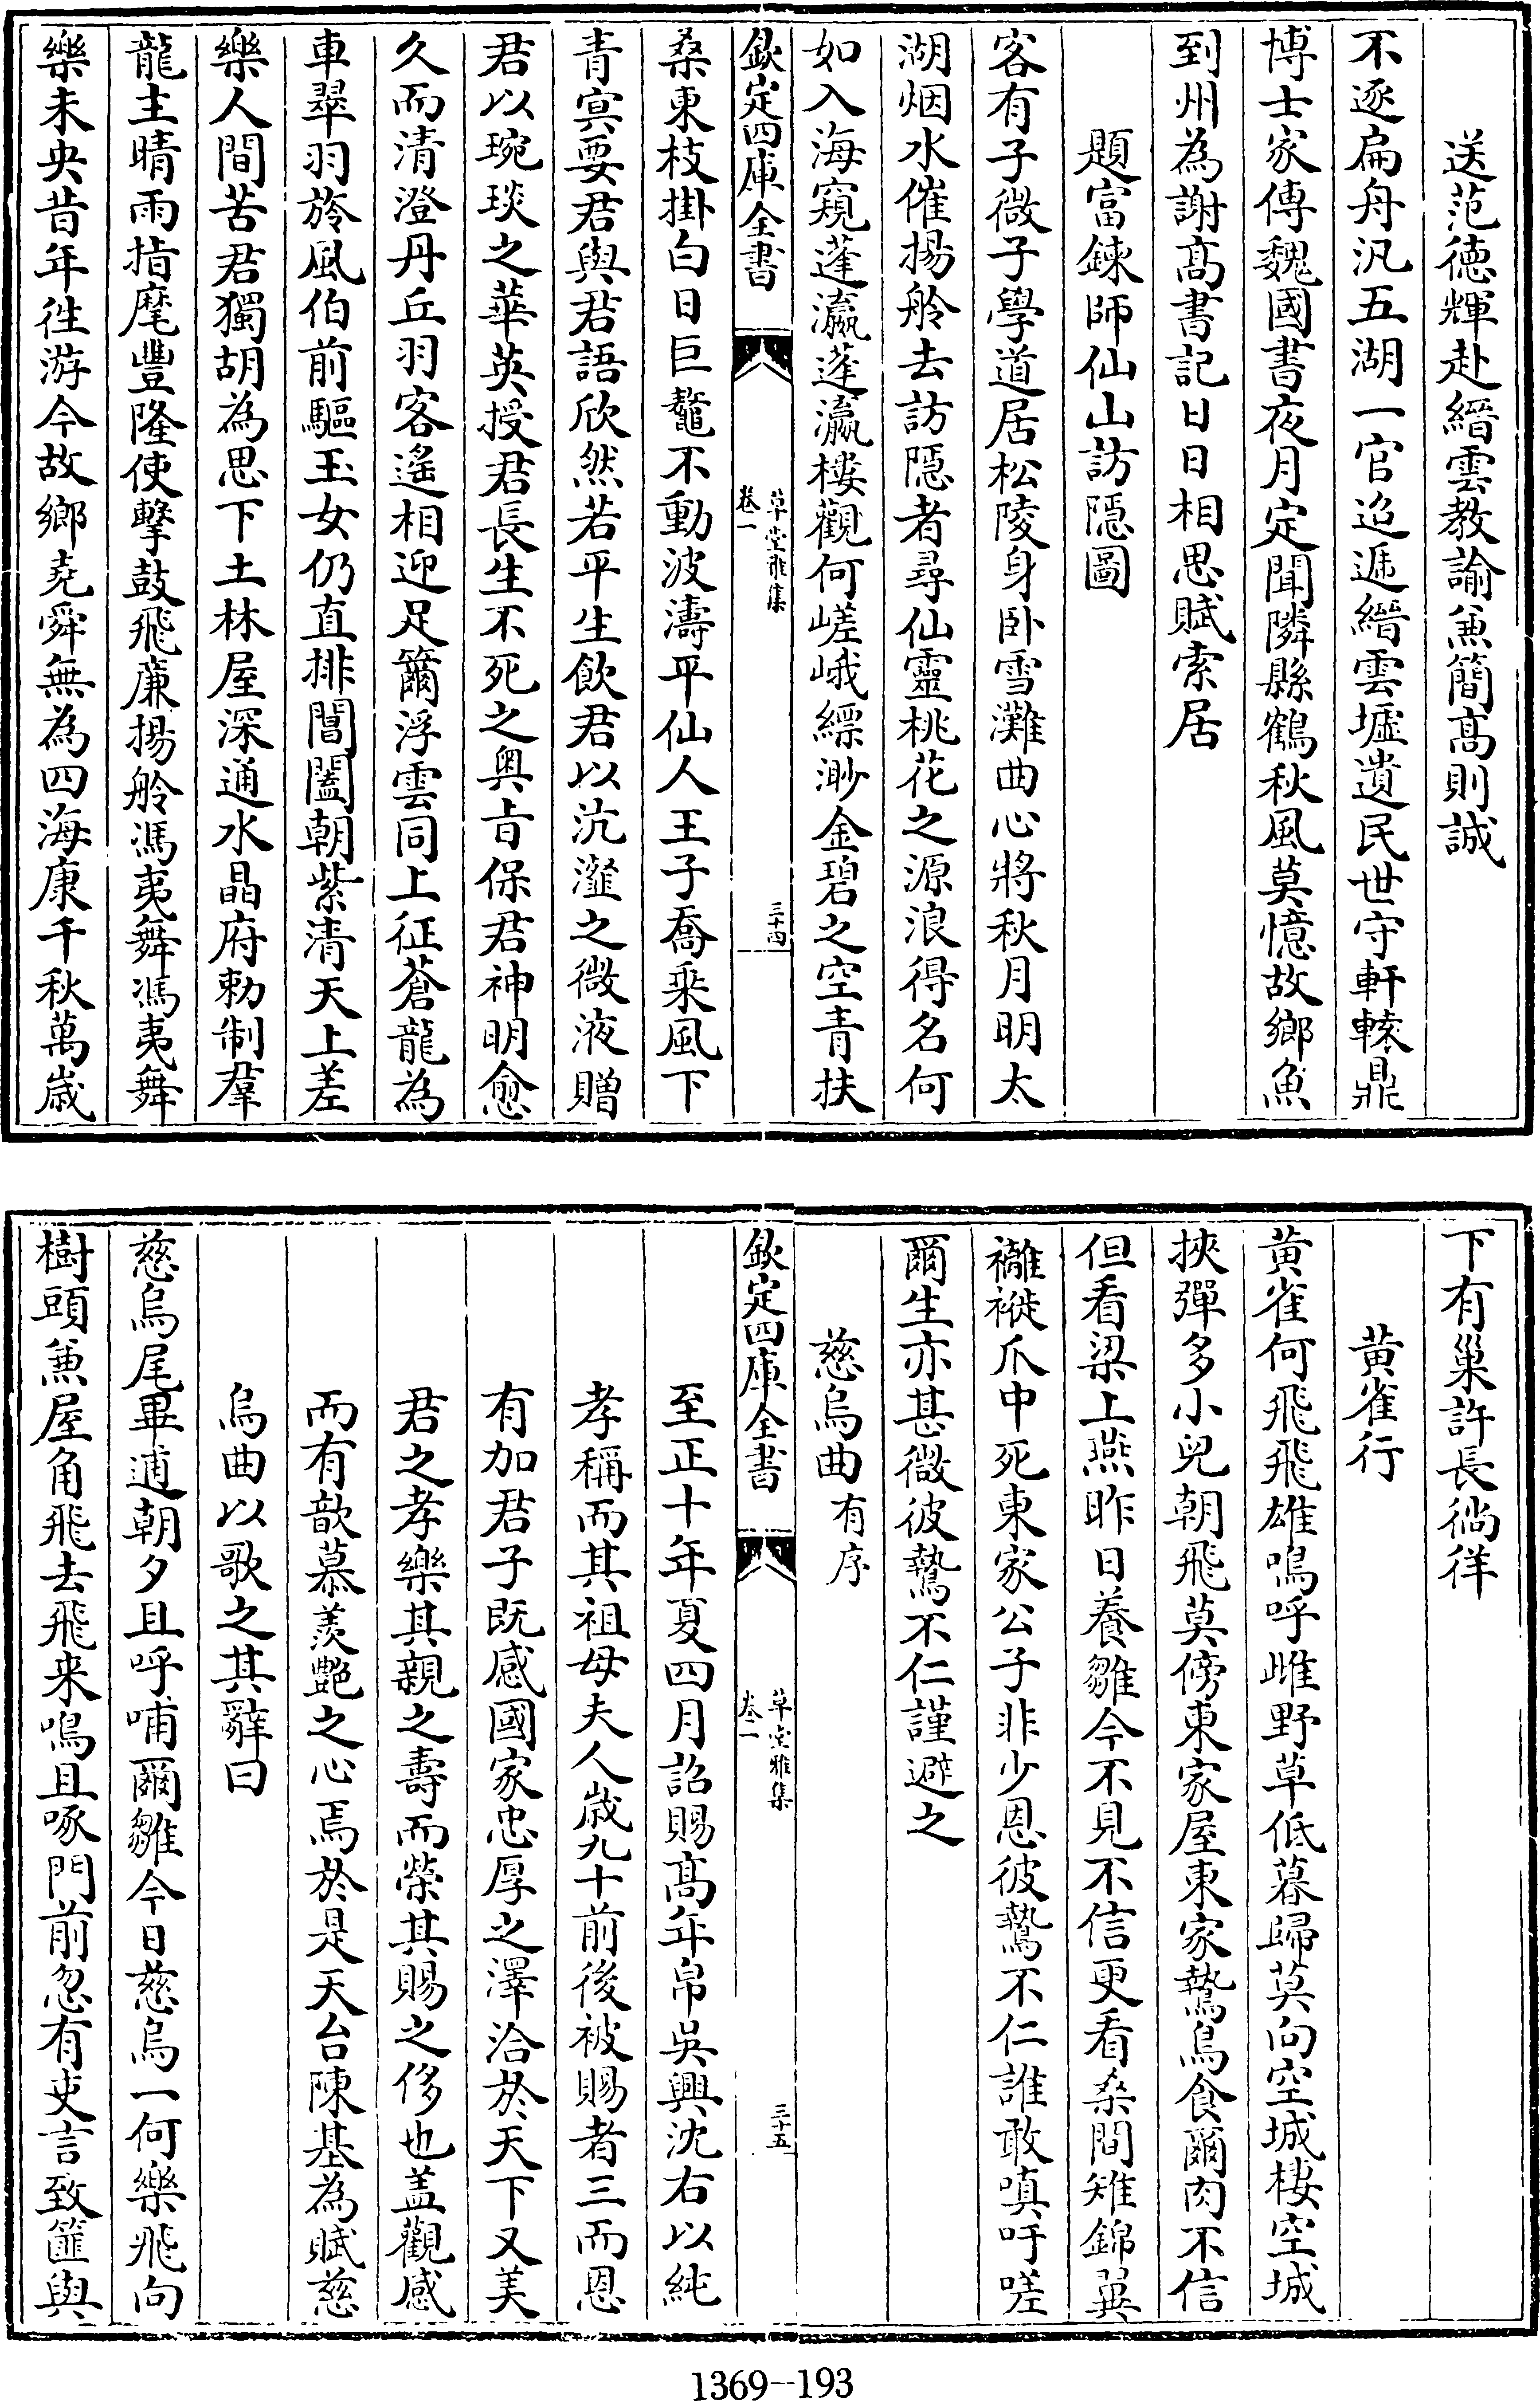 送范徳輝赴縉雲教諭兼簡髙則誠
不逐扁舟汎五湖一官迢遞縉雲墟遺民世守軒轅鼎
博士家傳魏國書夜月定聞隣縣鶴秋風莫憶故鄉魚
到州為謝髙書記日日相思賦索居
題富鍊師仙山訪隠圖
客有子微子學道居松陵身卧雪灘曲心將秋月明太
湖烟水催揚舲去訪隠者尋仙靈桃花之源浪得名何
如入海窺蓬瀛蓬瀛樓觀何嵯峨縹渺金碧之空青扶
欽定四庫全書
草堂雅集
卷一
三十四
桑東枝掛白日巨鼇不動波濤平仙人王子喬乘風下
青㝠要君與君語欣然若平生飲君以沆瀣之微液贈
君以琬琰之華英授君長生不死之奥㫖保君神明愈
久而清澄丹丘羽客遙相迎足躡浮雲同上征蒼龍為
車翠羽旍風伯前驅玉女仍直排閶闔朝紫清天上差
樂人間苦君獨胡為思下土林屋深通水晶府勅制羣
龍主晴雨指麾豐隆使擊鼓飛廉揚舲馮夷舞馮夷舞
樂未央昔年徃游今故鄉堯舜無為四海康千秋萬歳
下有巢許長徜徉
黄雀行
黄雀何飛飛雄鳴呼雌野草低暮歸莫向空城棲空城
挾彈多小兒朝飛莫傍東家屋東家鷙鳥食爾肉不信
但看梁上燕昨日養雛今不見不信更看桑間雉錦翼
襹褷爪中死東家公子非少恩彼鷙不仁誰敢嗔吁嗟
爾生亦甚微彼鷙不仁謹避之
慈烏曲有序
欽定四庫全書
草堂雅集
卷一
三十五
至正十年夏四月詔賜髙年帛吳興沈右以純
孝稱而其祖母夫人歲九十前後被賜者三而恩
有加君子既感國家忠厚之澤洽於天下又美
君之孝樂其親之壽而榮其賜之侈也盖觀感
而有歆慕羡艷之心焉於是天台陳基為賦慈
烏曲以歌之其辭曰
慈烏尾畢逋朝夕且呼哺爾雛今日慈烏一何樂飛向
樹頭兼屋角飛去飛来鳴且啄門前忽有吏言致篚與
1369-193